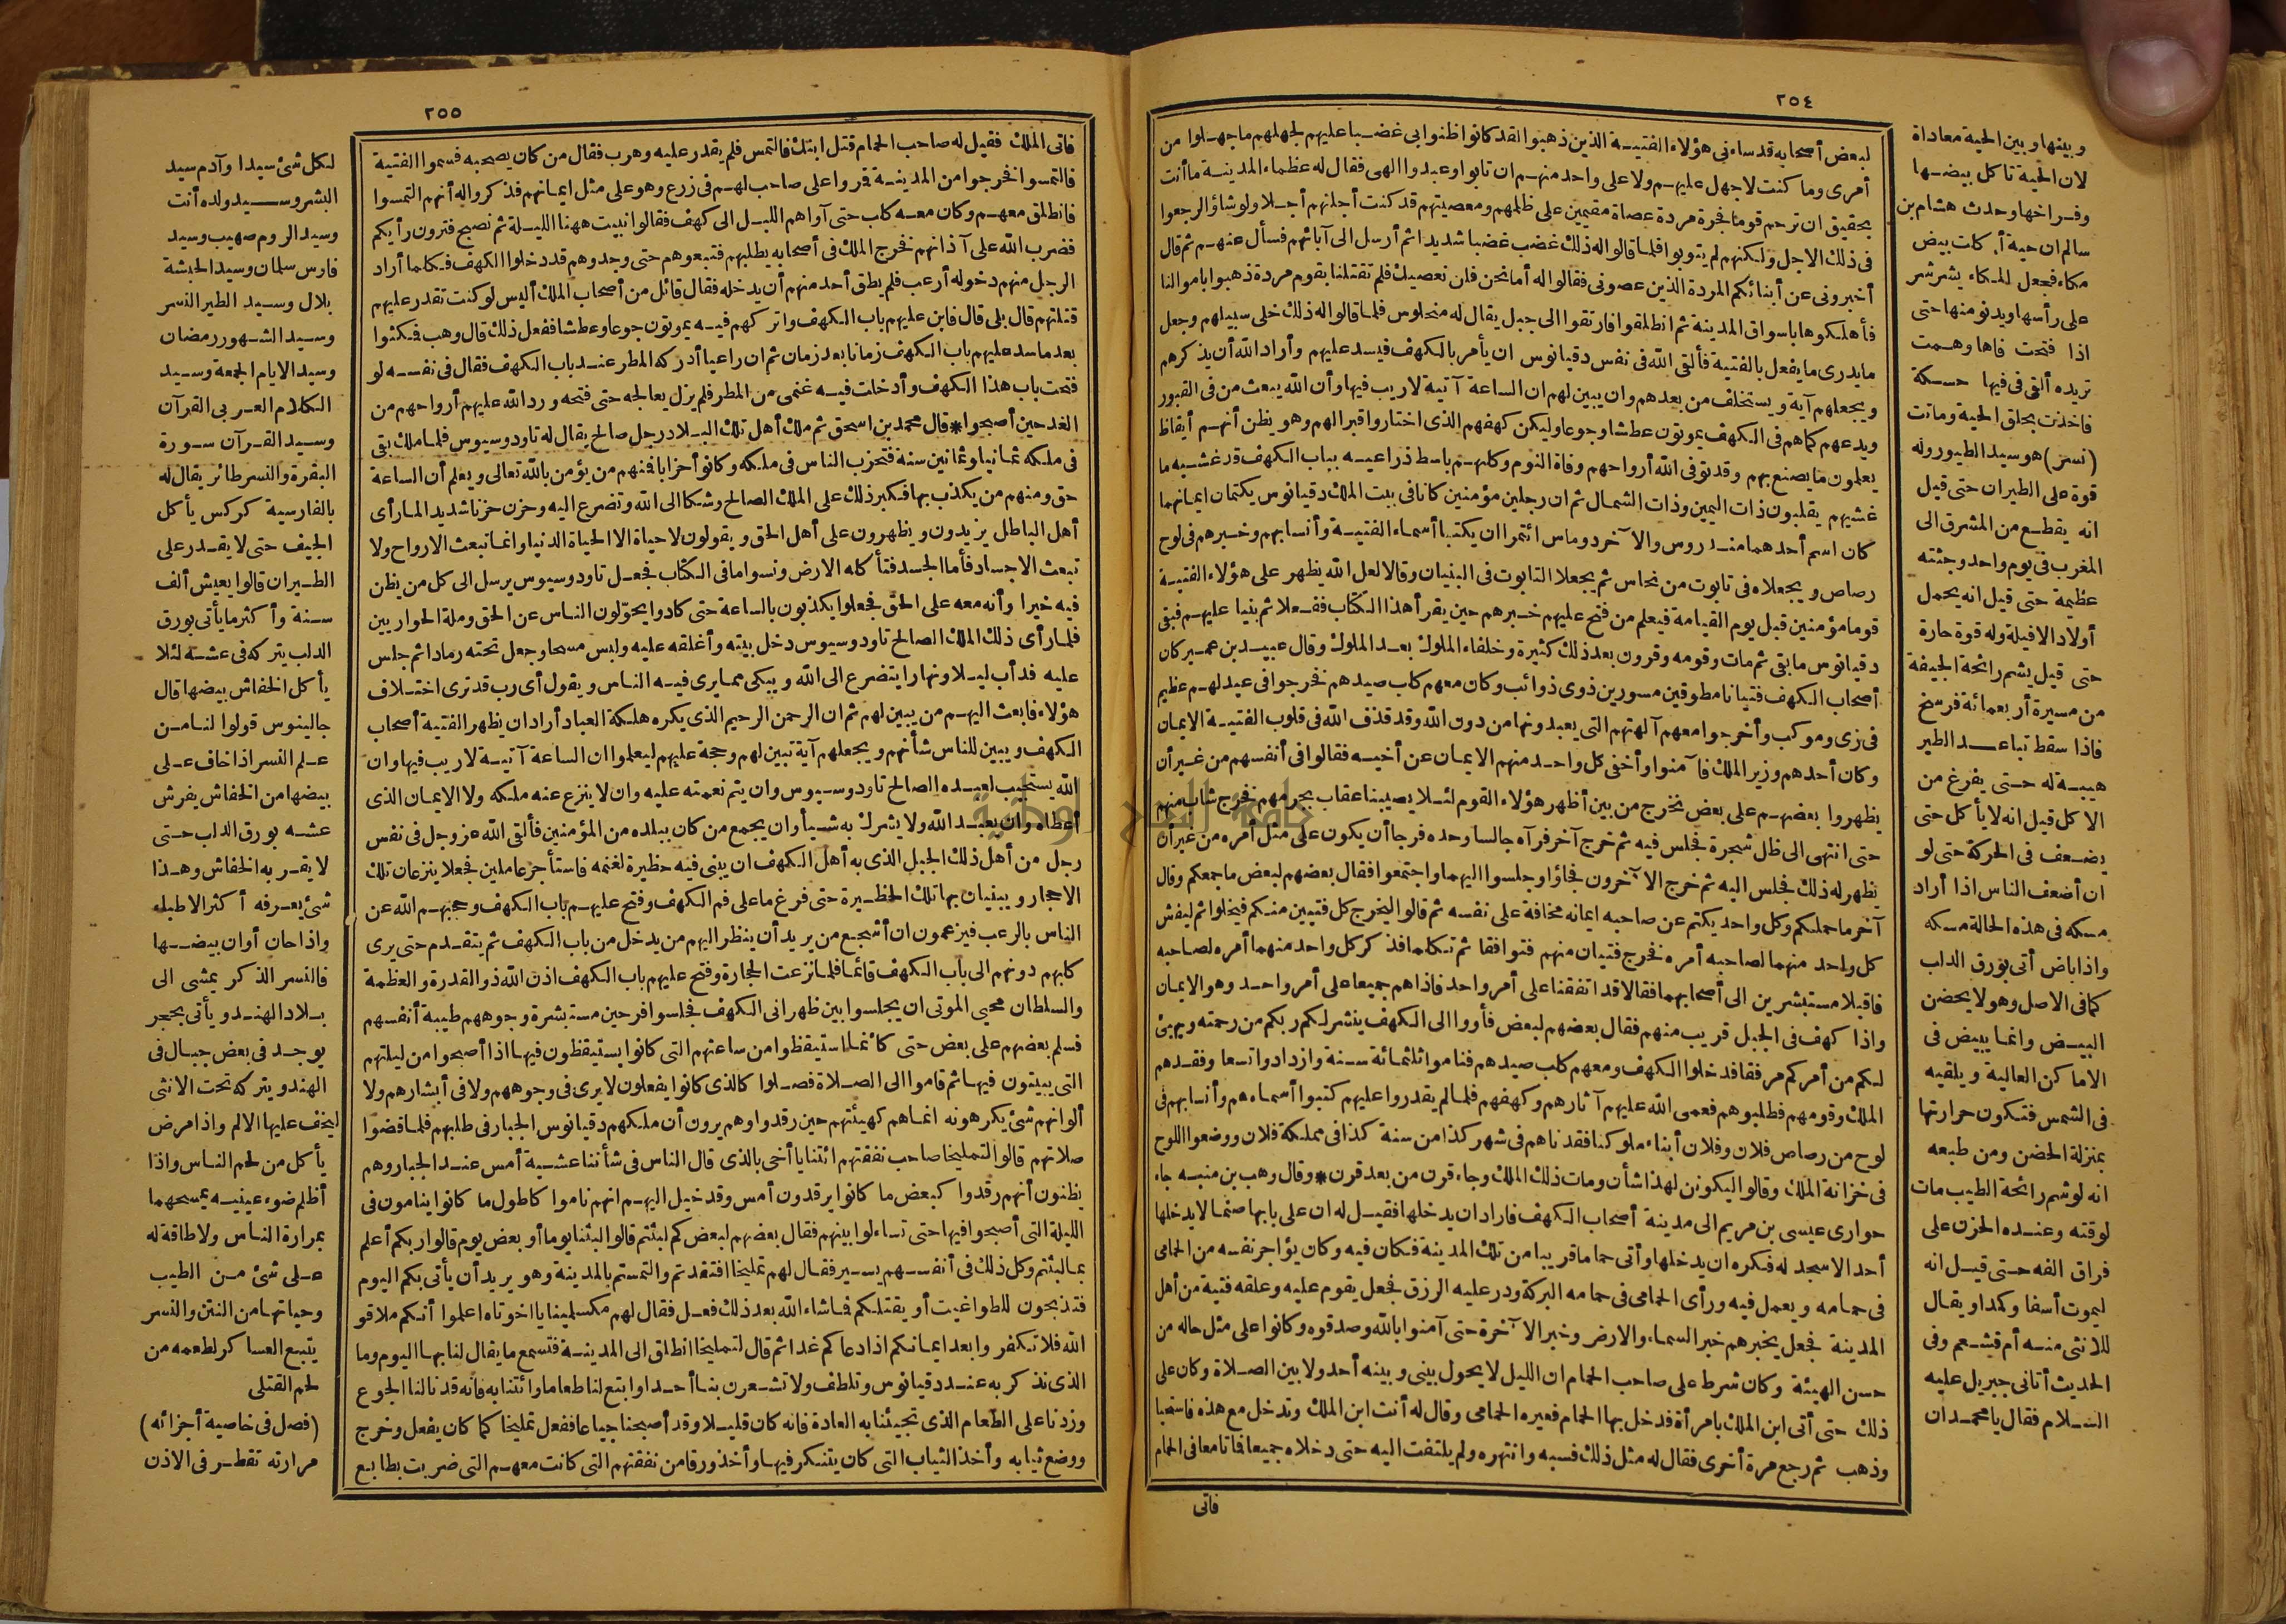 ٢٥٤
لبعض أصحابه قد ساءنى هؤلاء الفتيـة الذين ذهبوا لقد كانوا ظنوا بى غضـبا عليهم لجهلهم ما جهـلوا من
أمرى وما كنت لاجهل عليهـم ولا على واحد منهـم ان تابوا وعبدوا الهى فقال له عظماء المدينـة ما أنت
بحقيق ان ترحم قوما فجرة مردة عصاة مقيمين على ظلمهم ومعصيتهم قد كنت أجلتهم أجـلا ولو شاؤا لرجعوا
فى ذلك الاجل ولكنهم لم يتوبوا فلما قالوا له ذلك غضب غضبا شديدا ثم أرسل الى آبائهم فسأل عنهـم ثم قال
أخبرونى عن أبنائكم المردة الذين عصونى فقالوا له أما نحن فلن نعصيك فلم تقتلنا بقوم مردة ذهبوا باموالنا
فأهلكوها باسواق المدينة ثم انطلقوا فارتقوا الى جبل يقال له منجلوس فلما قالوا له ذلك خلى سبيلهم وجعل
ما يدرى ما يفعل بالفتية فألقى الله فى نفس دقيانوس ان يأمر بالكهف فيسد عليهم وأراد الله أن يذكرهم
ويجعلهم آية ويستخلف من بعدهم وان يبين لهم ان الساعة آتية لا ريب فيها وأن الله يبعث من فى القبور
ويدعهم كما هم فى الكهف يموتون عطشا وجوعا وليكن كهفهم الذى اختاروا قبرا لهم وهو يظن أنهـم أيقاظ
يعلمون ما يصنع بهم وقد توفى الله أرواحهم وفاة النوم وكلبهـم باسط ذراعيـه بباب الكهف قد غشـيه ما
غشيهم يقلبون ذات اليمين وذات الشمـال ثم ان رجلين مؤمنين كانا فى بيت الملك دقيانوس يكتمان ايمانهما
كان اسم أحدهما منـدروس والآخر دوماس ائتمرا ان يكتبا أسماء الفتيـة وأنسابهم وخـبرهم فى لوح
رصاص ويجعلاه فى تابوت من نحاس ثم يجعلا التابوت فى البنيان وقالا لعل الله يظهر على هؤلاء الفتيـة
قوما مؤمنين قبل يوم القيامة فيعلم من فتح عليهم خـبرهم حين يقرأ هذا الكتاب ففـعلا ثم بنيا عليهـم فبقى
دقيانوس ما بقى ثم مات وقومه وقرون بعد ذلك كثيرة وخلفاء الملوك بعـد الملوك وقال عبيـد بن عمـير كان
أصحاب الكهف فتيانا مطوقين مسورين ذوى ذوائب وكان معهم كلب صيدهم فخرجوا فى عيد لهـم عظيم
فى زى وموكب وأخرجوا معهم آلهتهم التى يعبدونها من دون الله وقد قذف الله فى قلوب الفتيـة الايمـان
وكان أحدهم وزير الملك فآمنوا وأخفى كل واحـد منهم الايمـان عن أخيـه فقالوا فى أنفسهم من غـير أن
يظهروا بعضهـم على بعض نخرج من بين أظهر هؤلاء القوم لئـلا يصيبنا عقاب بجرمهم فخرج شاب منهم
حتى انتهى الى ظل شجرة فجلس فيه ثم خرج آخر فرآه جالسا وحده فرجا أن يكون على مثل أمره من غير أن
يظهر له ذلك فجلس اليه ثم خرج الآخرون فجاؤا وجلسوا اليهما واجتمعوا فقال بعضهم لبعض ما جمعكم وقال
آخر ما جمعكم وكل واحد يكتم عن صاحبه ايمانه مخافة على نفسه ثم قالوا ليخرج كل فتيين منكم فيخلوا ثم ليفش
كل واحد منهما لصاحبه أمره فخرج فتيان منهم فتوافقا ثم تكلما فذكر كل واحد منهما أمره لصاحبه
فاقبلا مستبشرين الى أصحابهما فقالا قد اتفقنا على أمر واحد فاذا هم جميعا على أمر واحـد وهو الايمـان
واذا كهف فى الجبل قريب منهم فقال بعضهم لبعض فأووا الى الكهف ينشر لكم ربكم من رحمته ويهيئ
لكم من أمركم مرفقا فدخلوا الكهف ومعهم كلب صيدهم فناموا ثلثمـائة سـنة وازدادوا تسعا وفقـدهم
الملك وقومهم فطلبوهم فعمى الله عليهم آثارهم وكهفهم فلمـا لم يقدروا عليهم كتبوا أسماءهم وأنسابهم فى
لوح من رصاص فلان وفلان أبناء ملوكنا فقدناهم فى شهر كذا من سنة كذا فى مملكة فلان ووضعوا اللوح
فى خزانة الملك وقالوا ليكونن لهذا شأن ومات ذلك الملك وجاء قرن من بعد قرن * وقال وهب بن منبـه جاء
حوارى عيسى بن مريم الى مدينة أصحاب الكهف فاراد ان يدخلها فقيـل له ان على بابها صنمـا لا يدخلها
أحد الا سجد له فكره ان يدخلها وأتى حماما قريبا من تلك المدينة فكان فيه وكان يؤاجر نفسه من الحمامى
فى حمامه ويعمل فيه ورأى الحمامى فى حمامه البركة ودر عليه الرزق فجعل يقوم عليه وعلقه فتية من أهل
المدينة فجعل يخبرهم خبر السماء والارض وخبر الآخرة حتى آمنوا بالله وصدقوه وكانوا على مثل حاله من
حسن الهيئة وكان شرط على صاحب الحمام ان الليل لا يحول بينى وبينه أحد ولا بين الصـلاة وكان على
ذلك حتى أتى ابن الملك بامرأة فدخل بها الحمام فعيره الحمامى وقال له أنت ابن الملك وتدخل مع هذه فاستحيا
وذهب ثم رجع مرة أخرى فقال له مثل ذلك فسبه وانتهره ولم يلتفت اليه حتى دخلاه جميعا فماتا معا فى الحمام
فاتى
وبينها وبين الحية معاداة
لان الحية تاكل بيضـها
وفـراخها وحدث هشام بن
سالم ان حية أكلت بيض
مكاء فجعل المكاء يشرشر
على رأسها ويدنو منها حتى
اذا فتحت فاها وهـمت
تريده ألقى فى فيها حسكة
فاخذت بحلق الحية وماتت
(نسر) هو سيد الطيور وله
قوة على الطيران حتى قيل
انه يقطـع من المشرق الى
المغرب فى يوم واحد وجثته
عظيمة حتى قيل انه يحمل
أولاد الافيلة وله قوة حارة
حتى قيل يشم رائحة الجيفة
من مسيرة أربعمائة فرسخ
فاذا سقط تباعـد الطير
هيبـة له حـتى يفرغ من
الاكل قيل انه لا يأكل حتى
يضـعف فى الحركة حتى لو
ان أضعف الناس اذا أراد
مسكه فى هذه الحالة مسكه
واذا باض أتى بورق الدلب
كما فى الاصل وهو لا يحضن
البيـض وانمـا يبيض فى
الاماكن العالية ويلقيه
فى الشمس فتكون حرارتها
بمنزلة الحضن ومن طبعه
انه لو شم رائحة الطيب مات
لوقته وعنـده الحزن على
فراق الفه حـتى قيـل انه
ليموت أسفا وكمدا ويقـال
للانثى منـه أم قشـعم وفى
الحديث أتانى جبريل عليه
السـلام فقال يا محمـد ان
٢٥٥
فاتى الملك فقيل له صاحب الحمام قتل ابنك فالتمس فلم يقدر عليه وهرب فقال من كان يصحبه فسموا الفتية
فالتمسوا فخرجوا من المدينـة فمروا على صاحب لهـم فى زرع وهو على مثل ايمـانهم فذكروا له أنهم التمسوا
فانطلق معهـم وكان معـه كلب حتى آواهم الليـل الى كهف فقالوا نبيت ههنا الليـلة ثم نصبح فترون رأيكم
فضرب الله على آذانهم فخرج الملك فى أصحابه يطلبهم فتبعوهم حتى وجدوهم قد دخلوا الكهف فكلما أراد
الرجل منهم دخوله أرعب فلم يطق أحد منهم أن يدخله فقال قائل من أصحاب الملك أليس لو كنت تقدر عليهم
قتلتهم قال بلى قال فابن عليهم باب الكهف واتركهم فيـه يموتون جوعا وعطشا ففعل ذلك قال وهب فمكثوا
بعد ما سد عليهم باب الكهف زمانا بعد زمان ثم ان راعيا أدركه المطر عنـد باب الكهف فقال فى نفسـه لو
فتحت باب هذا الكهف وأدخلت فيـه غنمى من المطر فلم يزل يعالجه حتى فتحه ورد الله عليهم أرواحهم من
الغد حين أصبحوا * قال محمد بن اسحق ثم ملك أهل تلك البـلاد رجل صالح يقال له تاودوسيوس فلمـا ملك بقى
فى ملكه ثمـانيا وثمـانين سنة فتحزب الناس فى ملكه وكانوا أحزابا فمنهم من يؤمن بالله تعالى ويعلم أن الساعة
حق ومنهم من يكذب بها فكبر ذلك على الملك الصالح وشكا الى الله وتضرع اليه وحزن حزنا شديدا لما رأى
أهل الباطل يزيدون ويظهرون على أهل الحق ويقولون لا حياة الا الحياة الدنيا وانما تبعث الارواح ولا
تبعث الاجساد فأما الجسد فتأكله الارض ونسوا ما فى الكتاب فجعـل تاودوسيوس يرسل الى كل من يظن
فيه خيرا وأنه معه على الحق فجعلوا يكذبون بالساعة حتى كادوا يحولون الناس عن الحق وملة الحواريين
فلما رأى ذلك الملك الصالح تاودوسيوس دخل بيته وأغلقه عليه ولبس مسحا وجعل تحته رمادا ثم جلس
عليه فدأب ليـلا ونهارا يتضرع الى الله ويبكى ممـا يرى فيـه الناس ويقول أى رب قد ترى اختـلاف
هؤلاء فابعث اليهـم من يبين لهم ثم ان الرحمن الرحيم الذى يكره هلكة العباد أراد ان يظهر الفتية أصحاب
الكهف ويبين للناس شأنهم ويجعلهم آية تبين لهم وحجة عليهم ليعلموا ان الساعة آتيـة لا ريب فيها وان
الله يستجيب لعبـده الصالح تاودوسـيوس وان يتم نعمته عليه وان لا ينزع عنه ملكه ولا الايمـان الذى
أعطاه وان يعبـد الله ولا يشرك به شـيأ وان يجمع من كان ببلده من المؤمنين فألقى الله عز وجل فى نفس
رجل من أهل ذلك الجبل الذى به أهل الكهف ان يبنى فيه حظيرة لغنمه فاستأجر عاملين فجعلا ينزعان تلك
الاحجار ويبنيان بها تلك الحظـيرة حتى فرغ ما على فم الكهف وفتح عليهـم باب الكهف وحجبهـم الله عن
الناس بالرعب فيزعمون ان أشجـع من يريد أن ينظر اليهم من يدخل من باب الكهف ثم يتقـدم حتى يرى
كلبهم دونهم الى باب الكهف قائمـا فلمـا نزعت الحجارة وفتح عليهم باب الكهف اذن الله ذو القدرة والعظمة
والسلطان محيى الموتى ان يجلسوا بين ظهرانى الكهف فجلسوا فرحين مستبشرة وجوههم طيبة أنفسهم
فسلم بعضهم على بعض حتى كأنمـا استيقظوا من ساعتهم التى كانوا يستيقظون فيهـا اذا أصبحوا من ليلتهم
التى يبيتون فيهـا ثم قاموا الى الصـلاة فصـلوا كالذى كانوا يفعلون لا يرى فى وجوههم ولا فى أبشارهم ولا
ألوانهم شئ يكرهونه انمـا هم كهيئتهم حين رقدوا وهم يرون أن ملكهم دقيانوس الجبار فى طلبهم فلمـا قضوا
صلاتهم قالوا لتمليخا صاحب نفقتهم ائتنا يا أخى بالذى قال الناس فى شأننا عشـية أمس عنـد الجبار وهم
يظنون أنهم رقدوا كبعض ما كانوا يرقدون أمس وقد خيل اليهـم انهم ناموا كاطول ما كانوا ينامون فى
الليلة التى أصبحوا فيها حتى تساءلوا بينهم فقال بعضهم لبعض كم لبثتم قالوا لبثنا يوما أو بعض يوم قالوا ربكم أعلم
بمـا لبثتم وكل ذلك فى أنفسـهم يسـير فقـال لهم تمليخا افتقدتم والتمستم بالمدينة وهو يريد أن يأتى بكم اليوم
فتذبحون للطواغيت أو يقتلكم فمـا شاء الله بعد ذلك فعـل فقال لهم مكسلمينا يا اخوتاه اعلموا أنكم ملاقو
الله فلا تكفروا بعد ايمـانكم اذا دعاكم غدا ثم قال لتمليخا انطلق الى المدينـة فتسمع ما يقال لنا بهـا اليوم وما
الذى نذكر به عنـد دقيانوس وتلطف ولا تشـعرن بنـا أحـدا وابتع لنا طعاما وائتنا به فانه قد نالنا الجوع
وزدنا على الطعام الذى تجيئنا به العادة فانه كان قليـلا وقد أصبحنا جياعا ففعل تمليخا كما كان يفعل وخرج
ووضع ثيابه وأخذ الثياب التى كان يتنكر فيهـا وأخذ ورقا من نفقتهم التى كانت معهـم التى ضربت بطابع
لكل شئ سيدا وآدم سيد
البشر وسـيد ولده أنت
وسيد الروم صهيب وسيد
فارس سلمان وسيد الحبشة
بلال وسـيد الطير النسر
وسـيد الشـهور رمضان
وسيد الايام الجمعة وسـيد
الكلام العـربى القرآن
وسـيد القـرآن سـورة
البقرة والنسر طائر يقال له
بالفارسية كركس يأكل
الجيف حتى لا يقـدر على
الطـيران قالوا يعيش ألف
سـنة وأكثر ما يأتى بورق
الدلب يتركه فى عشـه لئلا
يأكل الخفاش بيضها قال
جالينوس قولوا لنـا مـن
عـلم النسر اذا خاف عـلى
بيضها من الخفاش يفرش
عشـه بورق الدلب حـتى
لا يقـربه الخفاش وهـذا
شئ يعـرفه أكثر الاطباء
واذا حان أوان بيضـها
فالنسر الذكر يمشى الى
بـلاد الهنـد ويأتى بحجر
يوجـد فى بعض جبـال فى
الهند ويتركه تحت الانثى
ليخف عليها الالم واذا مرض
يأكل من لحم النـاس واذا
أظلم ضوء عينيـه يمسحهما
بمرارة النـاس ولا طاقة له
عـلى شئ مـن الطيب
وحياتهـا من النتن والنسر
يتبـع العساكر لطعمه من
لحم القتلى
(فصل فى خاصية أجزائه)
مرارته تقطـر فى الاذن